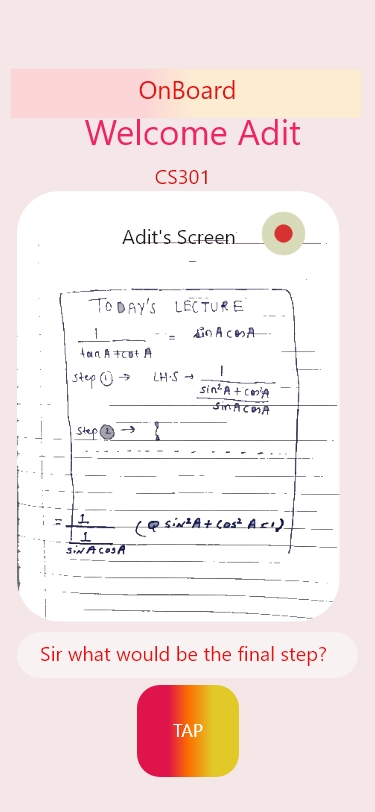 OnBoard
Welcome Adit
CS301
Adit's Screen
TODAY'S LECTURE
1/(tan A + cot A) = sin A cos A
Step ① → LH·S → 1/((sin²A + cos²A)/(sin A cos A))
Step ② → {
= 1/(1/(sin A cos A)) ( sin²A + cos²A = 1)
Sir what would be the final step?
TAP